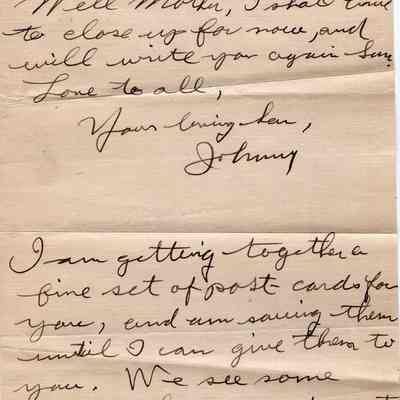 Well Mother, I shall have
to close up for now, and
will write you again Sun.
Love to all,
Your loving son,
Johnny
I am getting together a
fine set of post-cards for
you, and am saving them
until I can give them to
you. We see some